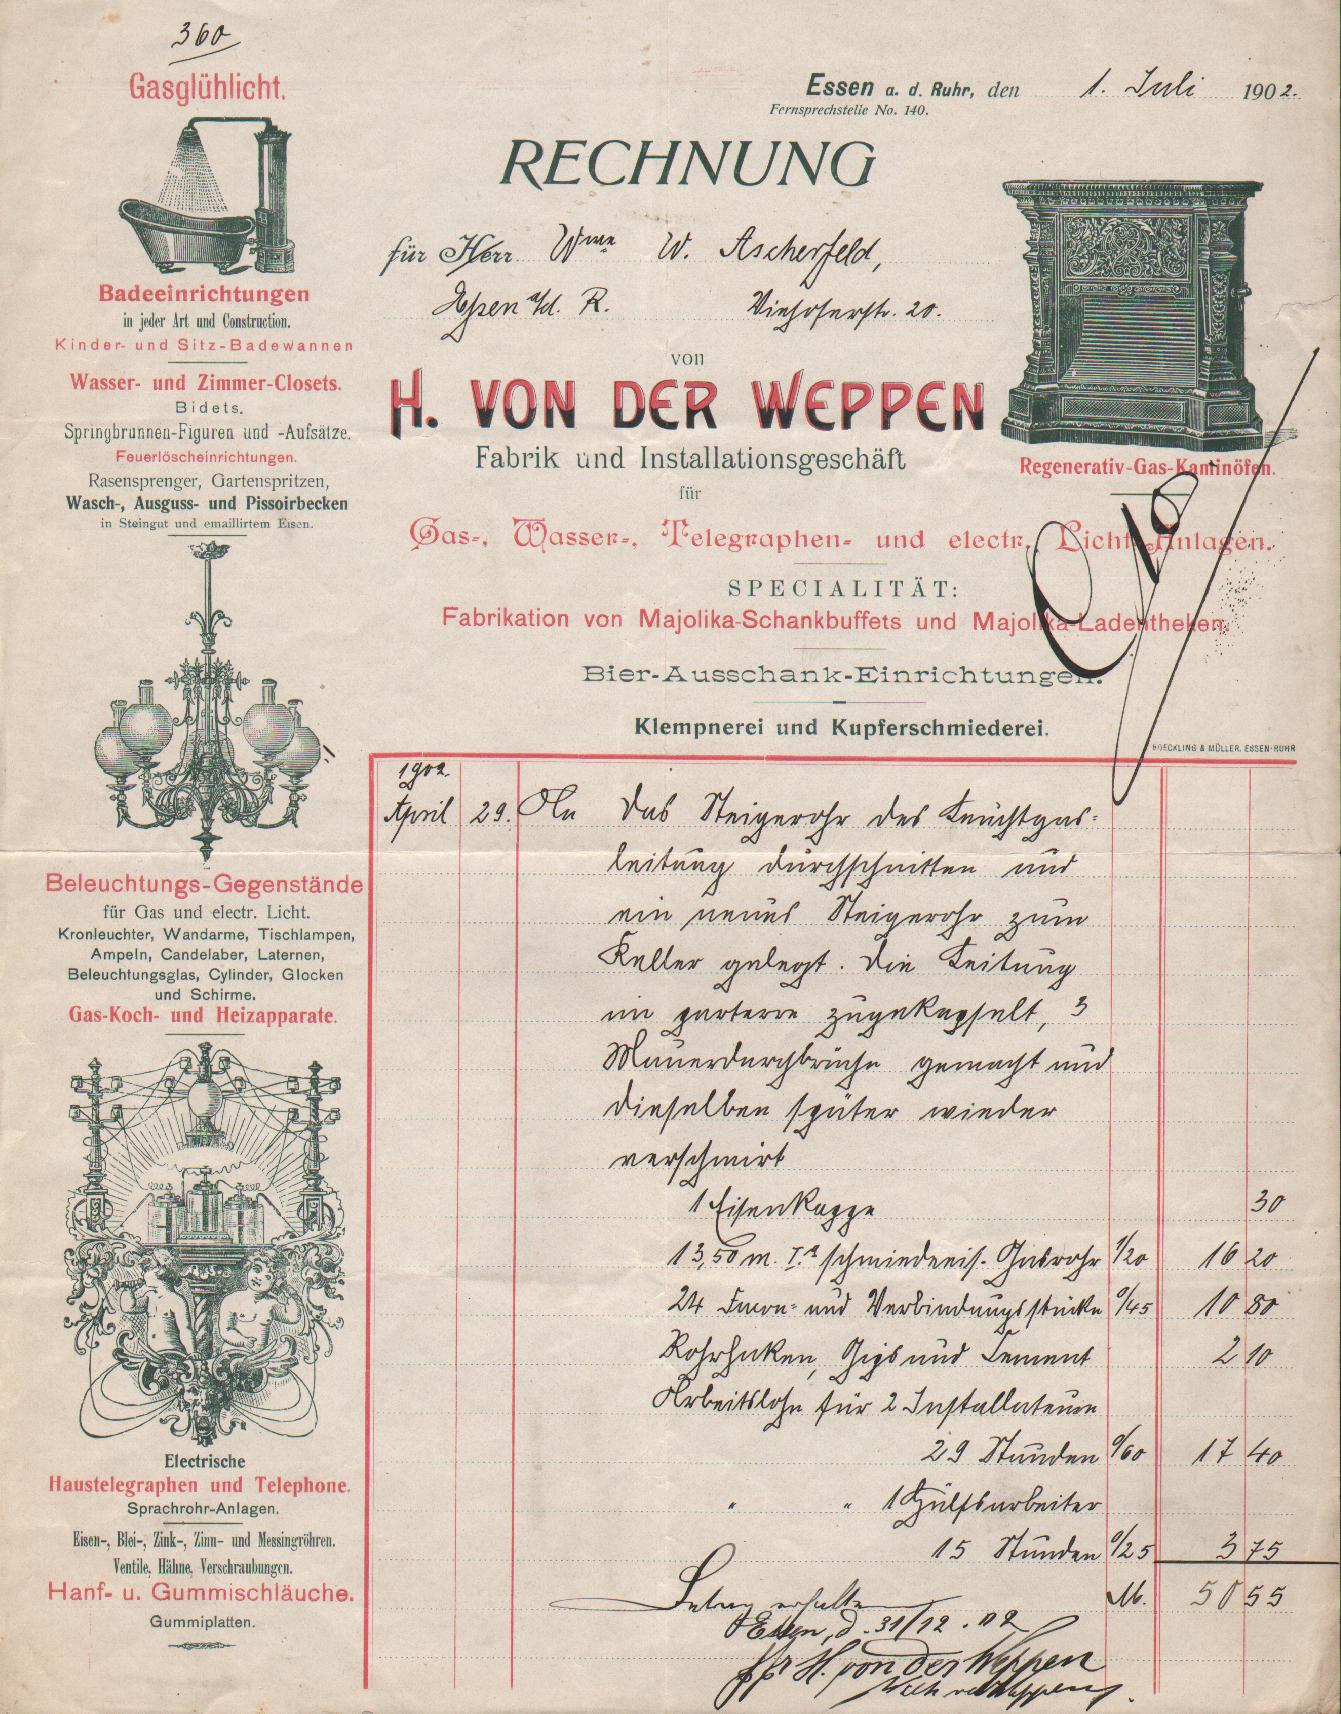 360
Gasglühlicht.
Essen a. d. Ruhr, den 1. Juli 1902.
Fernsprechstelle No. 140.
RECHNUNG
für Herr Wwe W. Ascherfeld,
Essen a/d. R. Viehoferstr. 20.
von
H. VON DER WEPPEN
Fabrik und Installationsgeschäft
für
Gas-, Wasser-, Telegraphen- und electr. Licht-Anlagen.
SPECIALITÄT:
Fabrikation von Majolika-Schankbuffets und Majolika-Ladentheken.
Bier-Ausschank-Einrichtungen.
Klempnerei und Kupferschmiederei.
Regenerativ-Gas-Kaminöfen.
HOECKLING & MÜLLER, ESSEN-RUHR
Badeeinrichtungen
in jeder Art und Construction.
Kinder- und Sitz-Badewannen
Wasser- und Zimmer-Closets.
Bidets.
Springbrunnen-Figuren und -Aufsätze.
Feuerlöscheinrichtungen.
Rasensprenger, Gartenspritzen,
Wasch-, Ausguss- und Pissoirbecken
in Steingut und emaillirtem Eisen.
Beleuchtungs-Gegenstände
für Gas und electr. Licht.
Kronleuchter, Wandarme, Tischlampen,
Ampeln, Candelaber, Laternen,
Beleuchtungsglas, Cylinder, Glocken
und Schirme.
Gas-Koch- und Heizapparate.
Electrische
Haustelegraphen und Telephone.
Sprachrohr-Anlagen.
Eisen-, Blei-, Zink-, Zinn- und Messingröhren.
Ventile, Hähne, Verschraubungen.
Hanf- u. Gummischläuche.
Gummiplatten.
1902
April 29. An Das Steigerohr des Leuchtgas-
leitung durchschnitten und
ein neues Steigerohr zum
Keller gelegt. Die Leitung
im parterre zugekapselt, 3
Mauerdurchbrüche gemacht und
dieselben später wieder
verschmirt
1 Eisenkappe 30
13,50 m. Ia schmiedeeis. Gasrohr 1/20 16 20
24 Facon- und Verbindungsstücke 0/45 10 80
Rohrhaken, Gips und Cement 2 10
Arbeitslohn für 2 Installateure
29 Stunden 0/60 17 40
" " 1 Hülfsarbeiter
15 Stunden 0/25 3 75
M. 50 55
Betrag erhalten
Essen, d. 31/12. 02
ppa H. von der Weppen